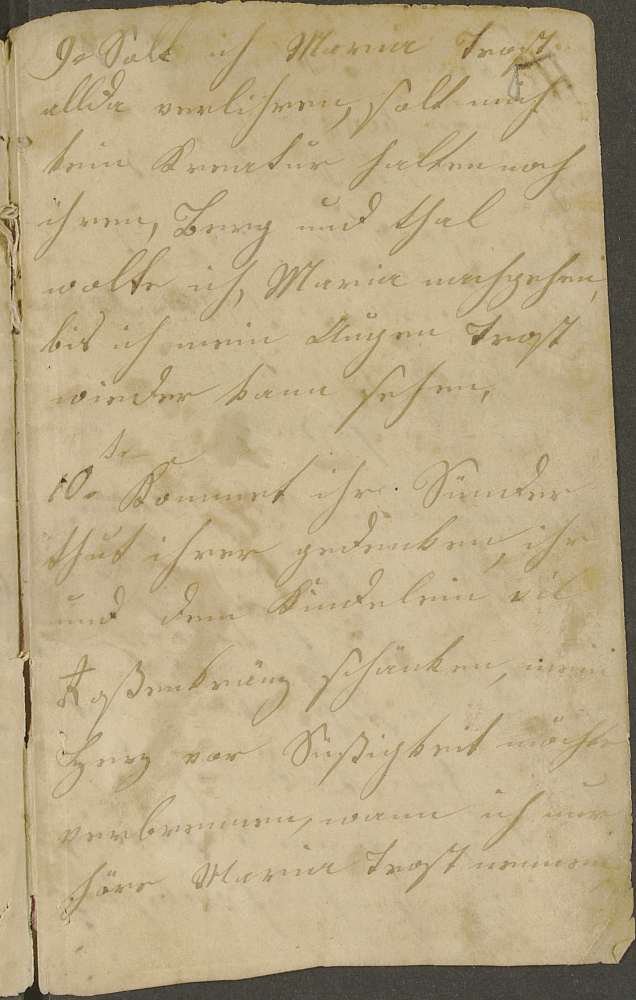 9. Solt ich Maria Trost
allda verlihren, solt mich
kein Kreatur halten noch
ihren, Berg und thal
wolte ich, Maria nachgehen,
bis ich mein Augen Trost
wieder kann sehen,
10te Kommet ihr Sünder
thut ihrer gedenken, ihr
und dem Kindelein vil
Roßenkränz schänken, mein
Herz vor Süßigkeit möchte
verbrennen, wann ich nur
höre Maria Trost nennen